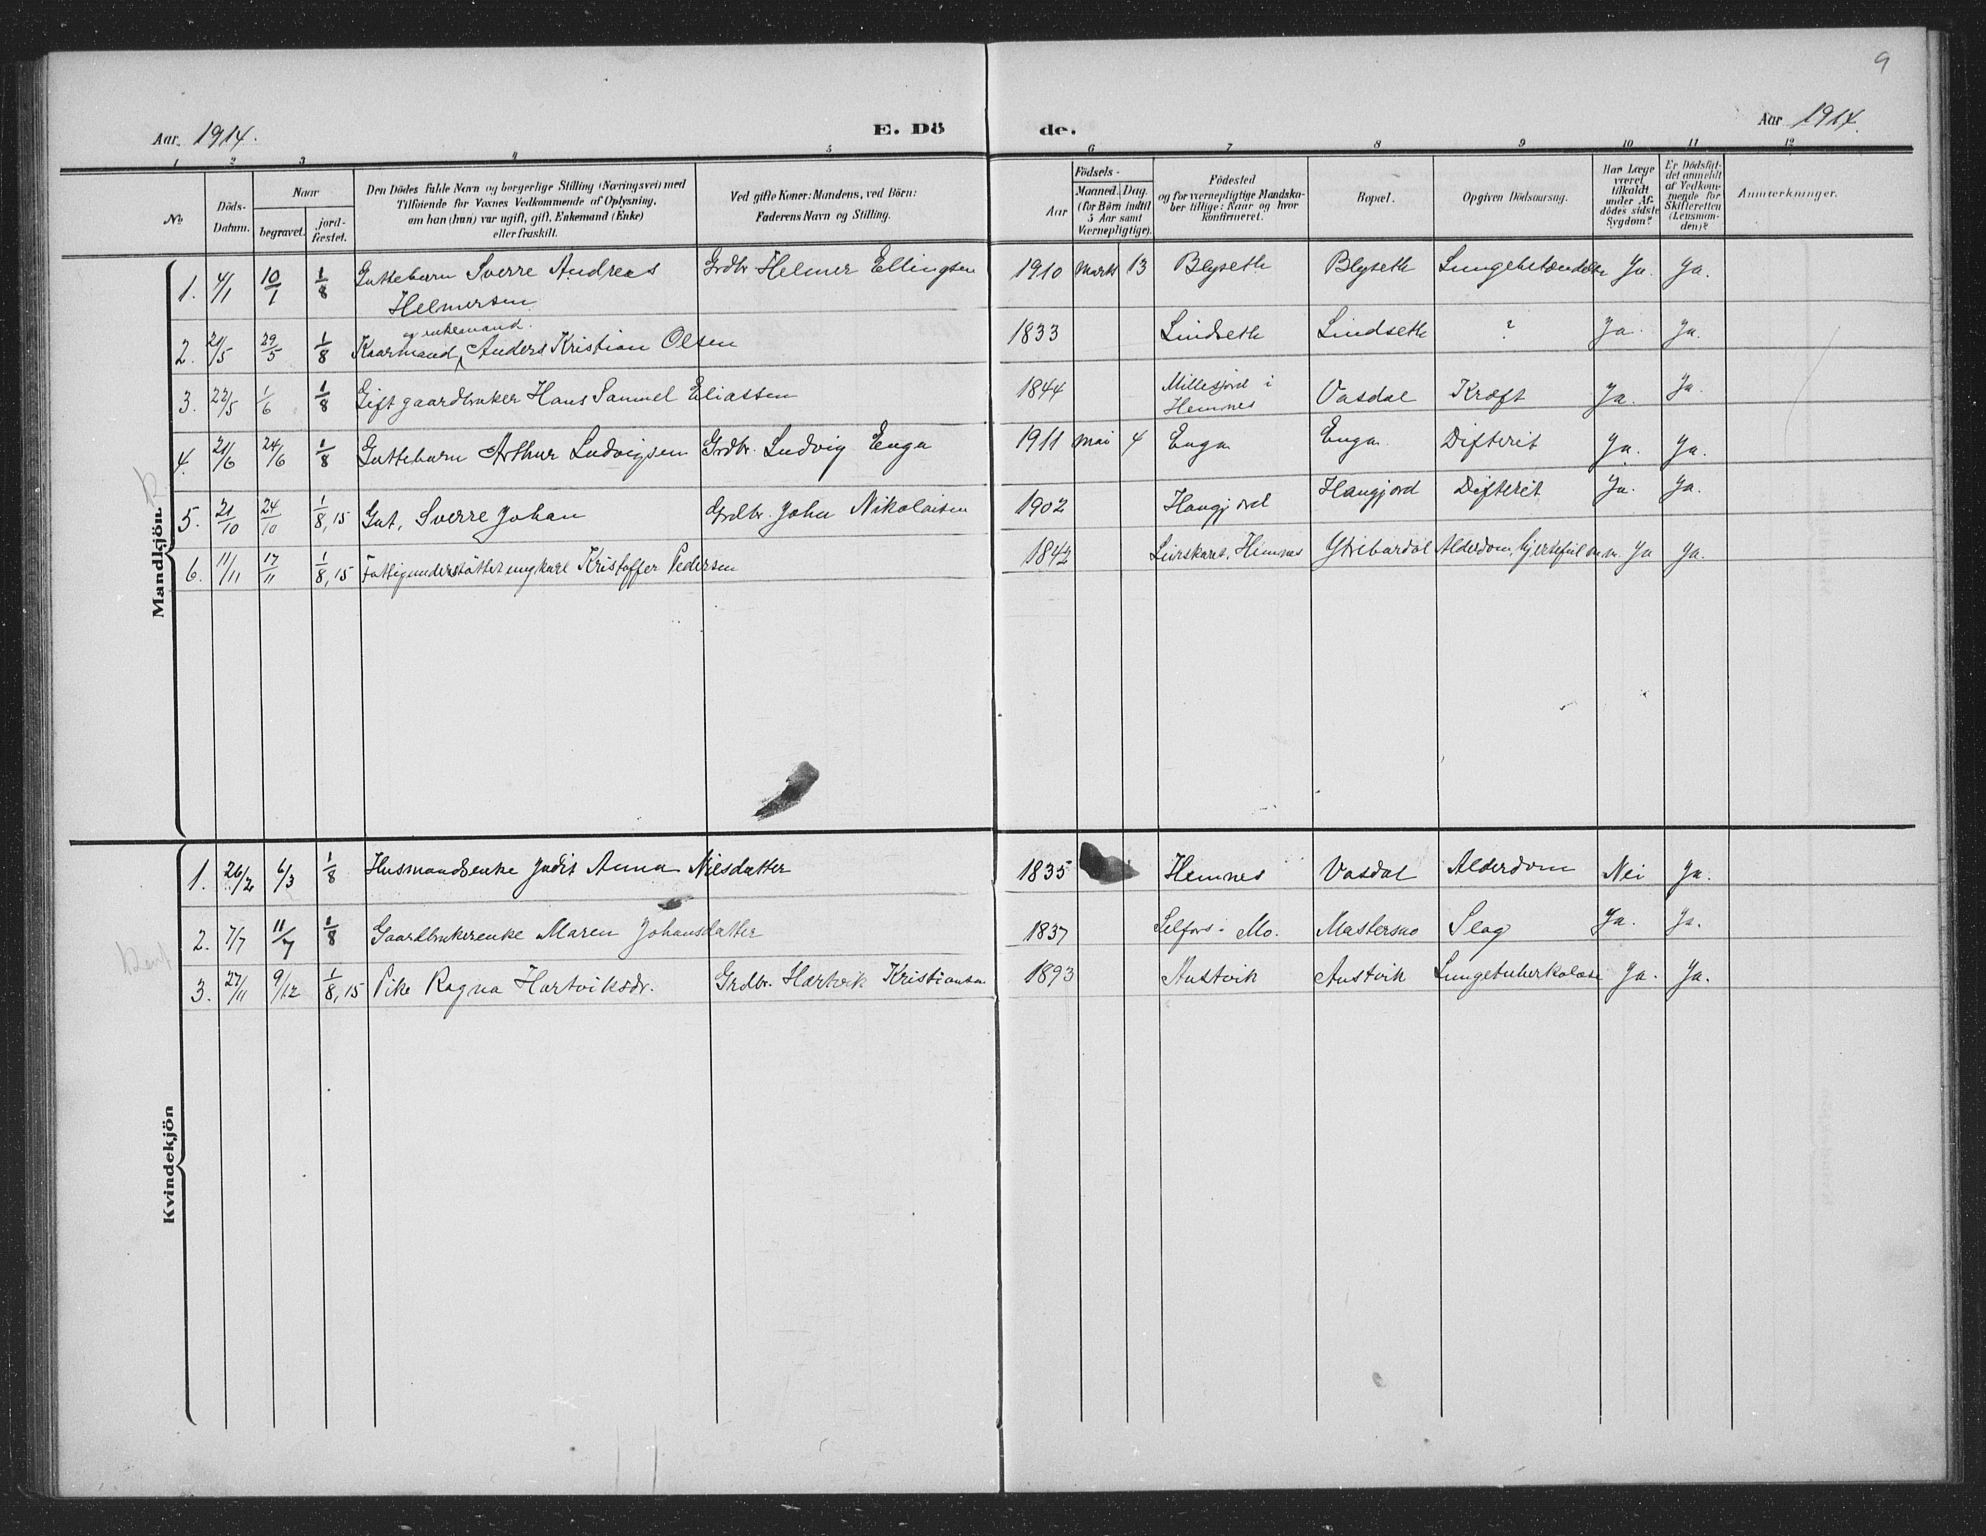 9
Aar 1914. E. Dö de. Aar 1914.
1 2 3 4 5 6 7 8 9 10 11 12
No
Döds-Datum.
Naar
begravet.
jord-fæstet.
Den Dödes fulde Navn og borgerlige Stilling (Næringsvei) med
Tilföiende for Voxnes Vedkommende af Oplysning,
om han (hun) var ugift, gift, Enkemand (Enke)
eller fraskilt.
Ved gifte Koner: Mandens, ved Börn:
Faderens Navn og Stilling.
Födsels-
Aar
Maaned. Dag.
(for Börn indtil
5 Aar samt
Værnepligtige).
Födested
og for værnepligtige Mandska-
ber tillige: Naar og hvor
konfirmeret.
Bopæl.
Opgiven Dödsaarsag.
Har Læge
været
tilkaldt
under Af-
dödes sidste
Sygdom?
Er Dödsfal-
det anmeldt
af Vedkom-
mende for
Skifteretten
(Lensman-
den)?
Anmærkninger.
Mandkjön.
1. 4/1 10/1 1/8 Guttebarn Sverre Andreas Grdbr Helmer Ellingsen 1910 Marts 13 Blyseth Blyseth Lungebetændelse Ja. Ja.
Helmersen
og enkemand.
2. 20/5 29/5 1/8 Kaarmand, Anders Kristian Olsen 1833 Lindseth Lindseth ? Ja. Ja.
3. 22/5 1/6 1/8 Gift gaardbruker Hans Samuel Eliassen 1844 Millesjord i Hemnes Vasdal Kræft Ja. Ja.
4. 21/6 24/6 1/8 Guttebarn Arthur Ludvigsen Grdbr. Ludvig Enga 1911 Mai 4 Enga Enga Difterit Ja. Ja.
5. 21/10 24/10 1/8, 15 Gut, Sverre Johan Grdbr. Johan Nikolaisen 1902 Haugjord Haugjord Difterit Ja. Ja.
6. 11/11 17/11 1/8, 15 Fattigunderstøttet ungkarl Kristoffer Pedersen 1842 Hemnes Alderdom, hjertefeil m.m. Ja Ja.
Kvindekjön
1. 26/2 6/3 1/8 Husmandsenke Judit Anna Nilsdatter 1835 Hemnes Vasdal Alderdom Nei Ja.
2. 7/7 11/7 1/8 Gaardbrukerenke Maren Johansdatter 1837 Selfors i Mo. Mastersno Slag Ja. Ja.
3. 27/11 9/12 1/8, 15 Pike Ragna Hartviksdr. Grdbr. Hartvik Kristiansen 1893 Austvik Austvik Lungetuberkolose Ja. Ja.